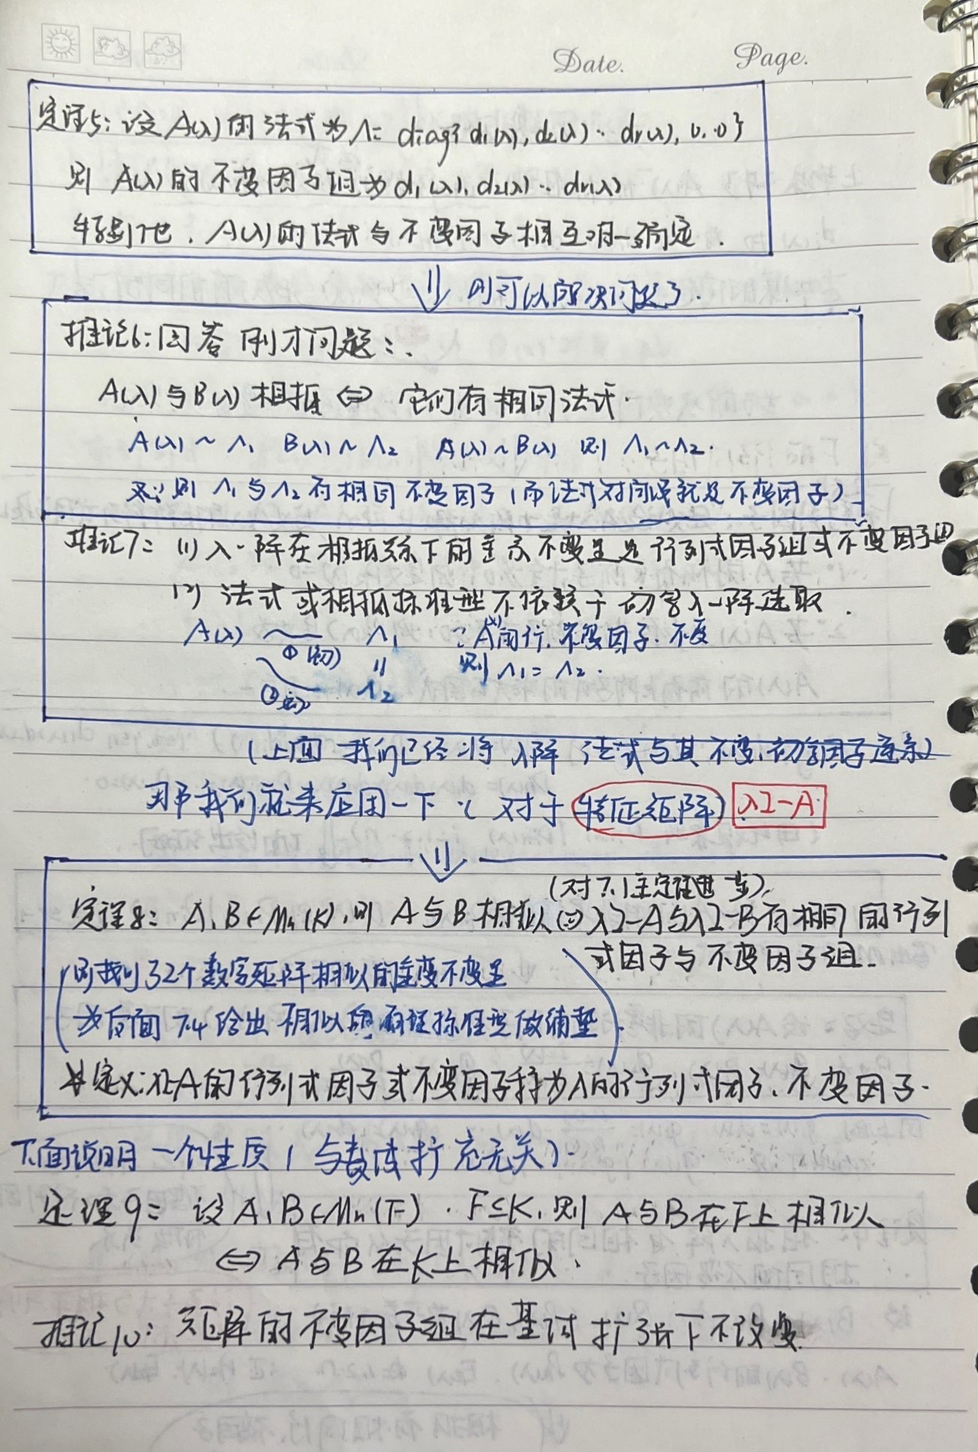 Date. Page.
定理5: 设A(λ)的法式为Λ= diag{d₁(λ), d₂(λ)‥ dr(λ), 0‥0}
则 A(λ)的不变因子组为d₁(λ), d₂(λ)‥ dr(λ)
特别地. A(λ)的法式与不变因子相互唯一确定.
⇓ 则可以解决问题了.
推论6: 回答刚才问题:.
A(λ)与B(λ)相抵 ⇔ 它们有相同法式.
A(λ) ~ Λ₁ B(λ) ~ Λ₂ A(λ) ~ B(λ) 则 Λ₁ ~ Λ₂.
则 Λ₁与Λ₂有相同不变因子(而法式对角线就是不变因子)
推论7: (1) λ-阵在相抵关系下的全系不变量是行列式因子组或不变因子组
(2) 法式或相抵标准型不依赖于初等λ-阵选取.
A(λ) ~ Λ₁ ∵ A(λ)的行.不变因子.不变
①(初) || 则 Λ₁ = Λ₂.
② Λ₂
(上面我们已经将λ阵法式与其不变,初等因子连系)
那我们就来应用一下 对于 特征矩阵 λI-A
⇓
(对7.1主定理进一步)
定理8: A,B∈Mn(K),则 A与B相似⇔λI-A与λI-B有相同的行列
式因子与不变因子组.
(则找到了2个数字矩阵相似的全系不变量
为后面7.4给出相似有理标准型做铺垫)
定义: 让A的行列式因子或不变因子特为λ的行列式因子、不变因子.
下面说明一个性质(与数域扩充无关).
定理9: 设A,B∈Mn(F). F⊆K,则 A与B在F上相似
⇔ A与B在K上相似.
推论10: 矩阵的不变因子组在基域扩张下不改变